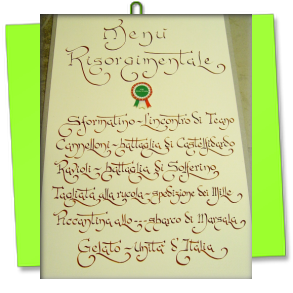 Menù
Risorgimentale
Sformatino - l'incontro di Teano
Cannelloni - battaglia di Castelfidardo
Ravioli - battaglia di Solferino
Tagliata alla rucola - spedizione dei Mille
Piccantina allo --- sbarco di Marsala
Gelato - Unità d'Italia